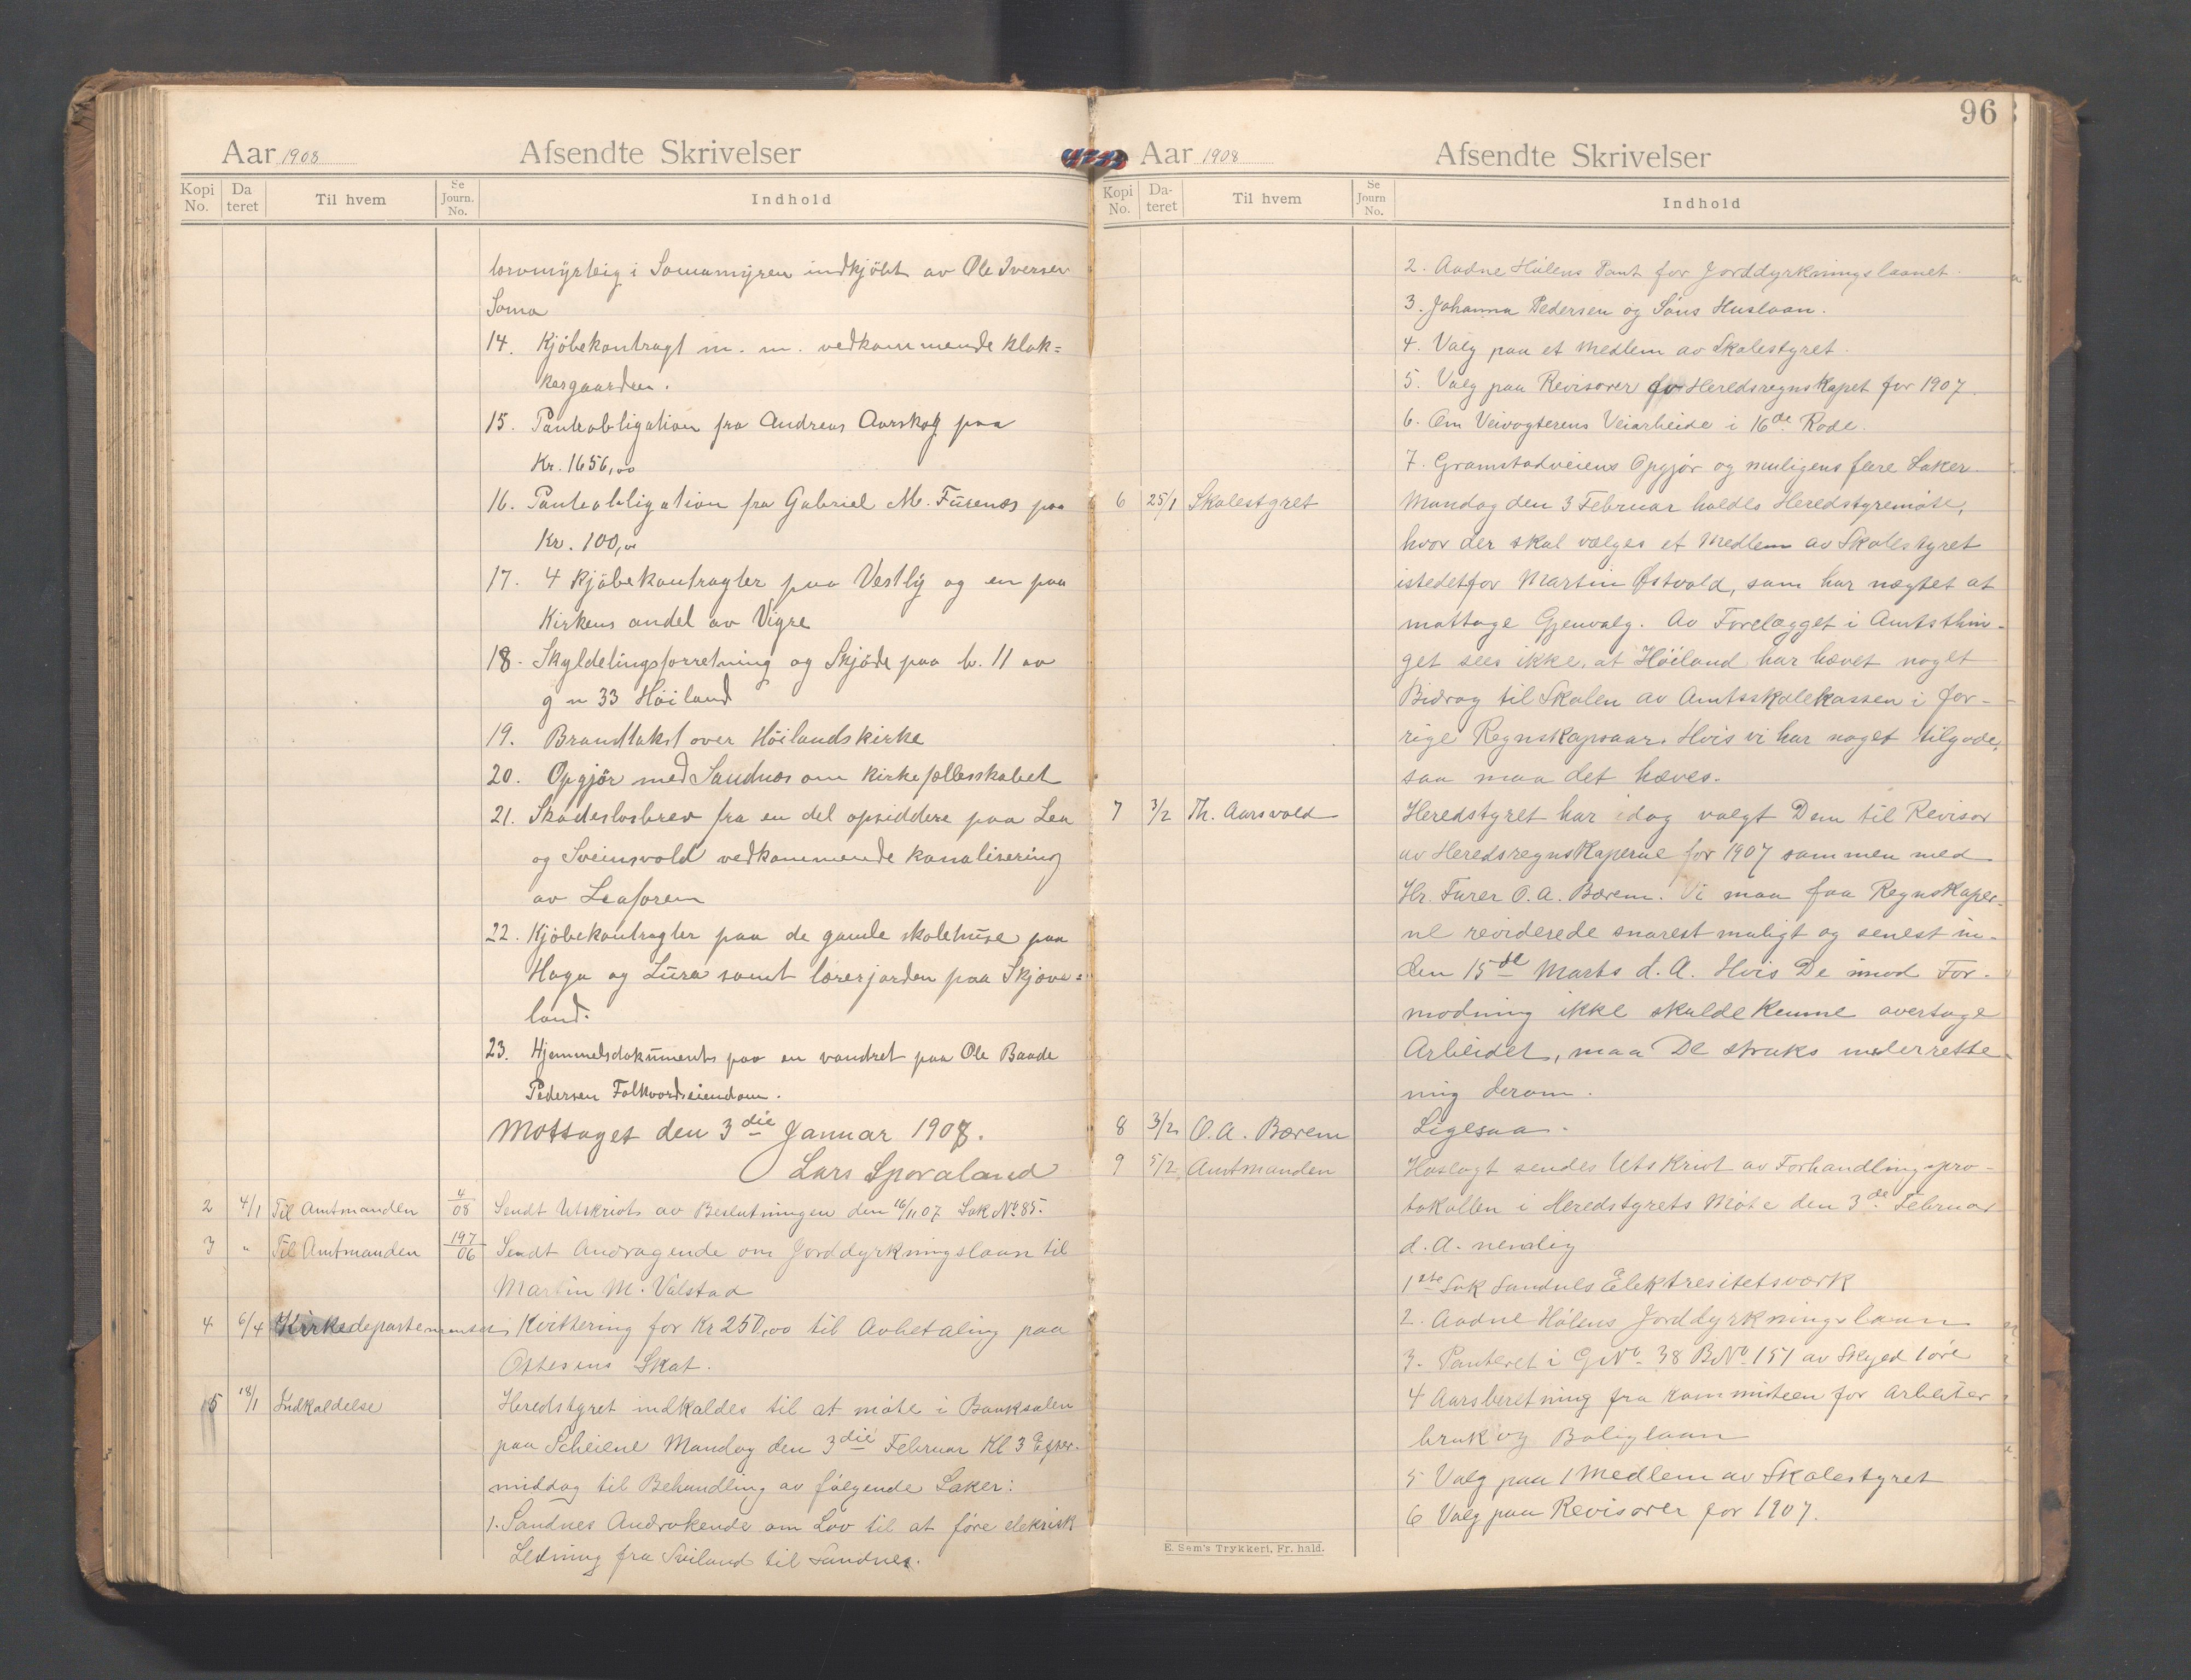 Aar 1908 Afsendte Skrivelser
Kopi No. Da teret Til hvem Se Journ. No. Indhold
torvmyrteig i Somamyren indkjöbt av Ole Iversen
Soma
14. Kjöbekontragt m. m. vedkommende klok=
kergaarden.
15. Panteobligation fra Andreas Aarskog paa
Kr. 1656,00
16. Panteobligation fra Gabriel M. Furenes paa
Kr. 100,00
17. 4 kjöbekontragter paa Vestly og en paa
Kirkens andel av Vigre
18. Skyldelingsforretning og Skjöde paa b. 11 av
g n 33 Höiland
19. Brandtakst over Höilands kirke
20. Opgjör med Sandnes om kirkefællesskabet
21. Skadeslosbrev fra en del opsiddere paa Lea
og Sveinsvold vedkommende kanalisering
av Leaforen
22. Kjöbekontragter paa de gamle skolehuse paa
Haga og Lura samt lærerjorden paa Skjæve=
land.
23. Hjemmelsdokuments paa en vandret paa Ole Baade
Pedersen Folkvords eiendom.
Mottaget den 3die Januar 1908.
Lars Sporaland
2 4/1 Til Amtmanden 4/08 Sendt Utskrivt av Beslutningen den 16/11 07. Sak No. 85.
3 " Til Amtmanden 197/06 Sendt Andragende om Jorddyrkningslaan til
Martin M. Valstad
4 6/4 Kirkedepartementet Kvittering for Kr 250,00 til Avbetaling paa
Ottesens Skat.
5 18/1 Indkaldelse Heredstyret indkaldes til at møte i Banksalen
paa Scheiene Mandag den 3die Februar Kl 3 Efter-
middag til Behandling av følgende Saker:
1. Sandnes Androkende om Lov til at føre elekrisk
Ledning fra Sviland til Sandnes.
96
Aar 1908 Afsendte Skrivelser
Kopi No. Da- teret Til hvem Se Journ No. Indhold
2. Aadne Hålens Pant for Jorddyrkningslaanet.
3. Johanna Pedersen og Søns Huslaan.
4. Valg paa et Medlem av Skolestyret.
5. Valg paa Revisorer for Heredsregnskapet for 1907.
6. Om Veivogterens Veiarbeide i 16de Rode.
7. Gramstadveiens Opgjør og muligens flere Saker.
6 25/1 Skolestyret Mandag den 3 Februar holdes Heredstyremøte,
hvor der skal vælges et Medlem av Skolestyret
istedetfor Martin Østvold, som har nægtet at
mottage Gjenvalg. Av Forelægget i Amtsthin-
get sees ikke, at Höiland har hævet noget
Bidrag til Skolen av Amtsskolekassen i for-
rige Regnskapsaar. Hvis vi har noget tilgode,
saa maa det hæves.
7 3/2 Th. Aarsvold Heredstyret har idag valgt Dem til Revisor
av Heredsregnskaperne for 1907 sammen med
Hr. Furer O. A. Bærem. Vi maa faa Regnskaper-
ne reviderede snarest muligt og senest in-
den 15de Marts d. A. Hvis De imod For-
modning ikke skulde kunne overtage
Arbeidet, maa De straks underrette
mig derom.
8 3/2 O. A. Bærem Ligesaa.
9 5/2 Amtmanden Hoslagt sendes Utskrivt av Forhandlingspro-
tokollen i Heredstyrets Møte den 3de Februar
d. A. nemlig
1ste Sak Sandnes Elektresitetsværk
2. Aadne Hålens Jorddyrkningslaan
3. Panteret i G No. 38 B No. 151 av Skjedtøre
4 Aarsberetning fra Kommisteen for Arbeiter
bruk og Boliglaan
5 Valg paa 1 Medlem av Skolestyret
6 Valg paa Revisorer for 1907.
E. Sem's Trykkeri, Fr. hald.